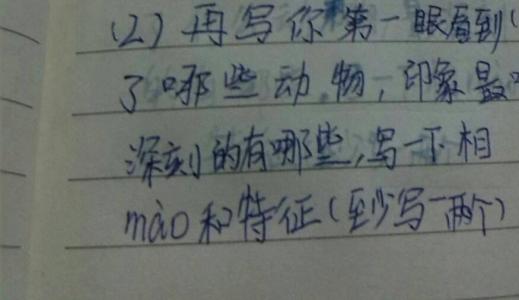 (2) 再写你第一眼看到(
了哪些动物,印象最
深刻的有哪些,写一下相
mào和特征(至少写一两个)